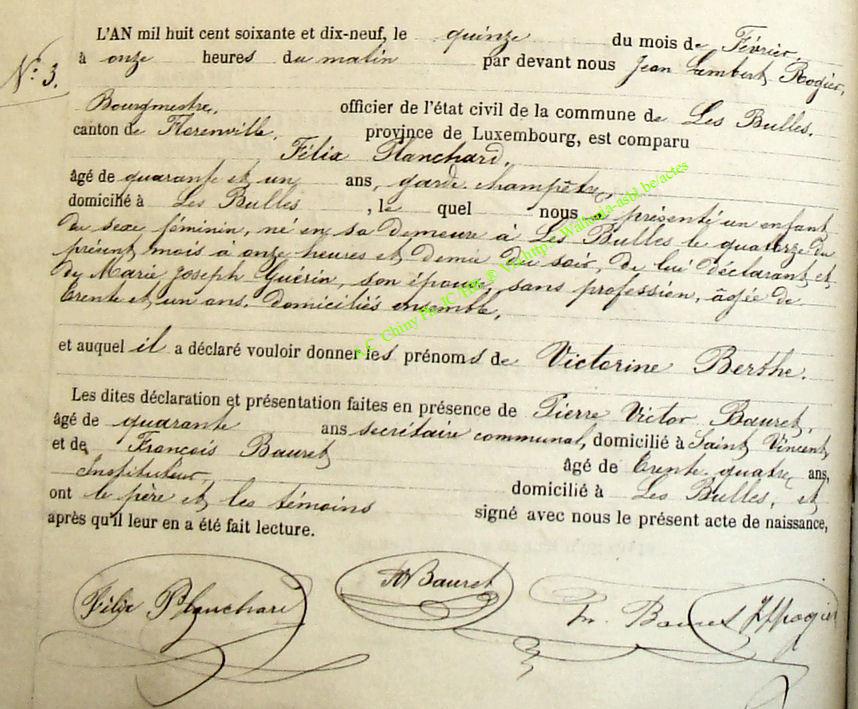 L'AN mil huit cent soixante et dix-neuf, le quinze du mois de Février,
à onze heures du matin par devant nous Jean Lambert Rogier,
N° 3.
Bourgmestre, officier de l'état civil de la commune de Les Bulles.
canton de Florenville, province de Luxembourg, est comparu
Félix Planchard,
âgé de quarante et un ans, garde champêtre,
domicilié à Les Bulles, le quel nous a présenté un enfant
du sexe féminin, né en sa demeure à Les Bulles le quatorze du
présent mois à onze heures et demie du soir, de lui déclarant et
de Marie Joseph Guérin, son épouse, sans profession, âgée de
trente et un ans, domiciliés ensemble,
et auquel il a déclaré vouloir donner les prénoms de Victorine Berthe.
Les dites déclaration et présentation faites en présence de Pierre Victor Bauret,
âgé de quarante ans secrétaire communal, domicilié à Saint Vincent
et de François Bauret âgé de trente quatre ans,
Instituteur, domicilié à Les Bulles, et
ont le père et les témoins signé avec nous le présent acte de naissance,
après qu'il leur en a été fait lecture.
Félix Planchard Bauret Fr. Bauret JLRogier
A.C. Chiny